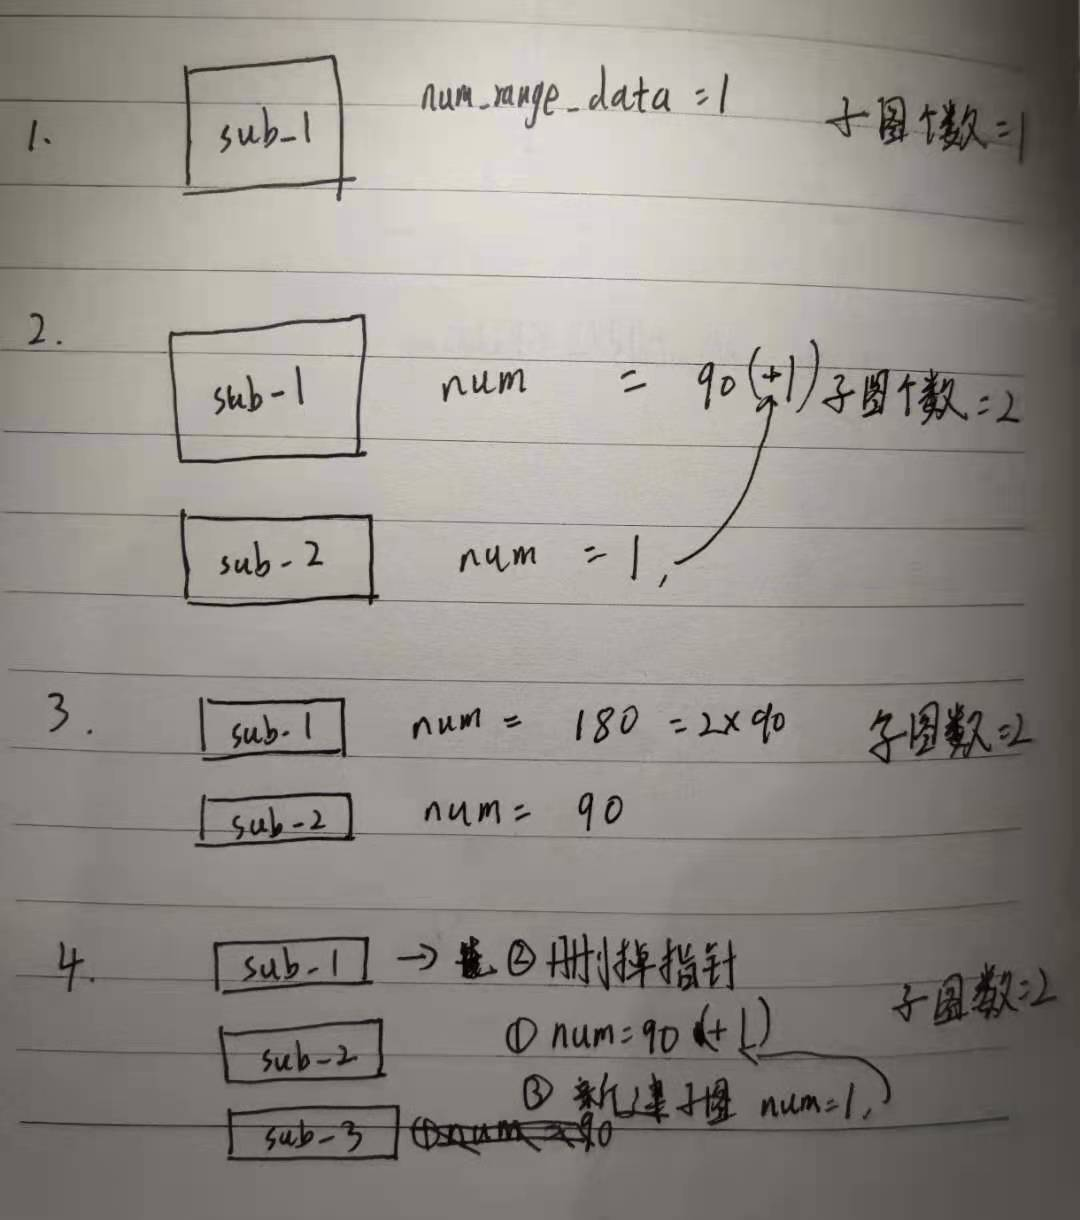 1. sub-1 num_range_data = 1 子图个数=1
2. sub-1 num = 90(+1) 子图个数=2
sub-2 num = 1,
3. sub-1 num = 180 = 2×90 子图数=2
sub-2 num = 90
4. sub-1 → ② 删掉指针 子图数=2
sub-2 ① num=90 (+1)
③ 新建子图 num=1,
sub-3 ① num = 90